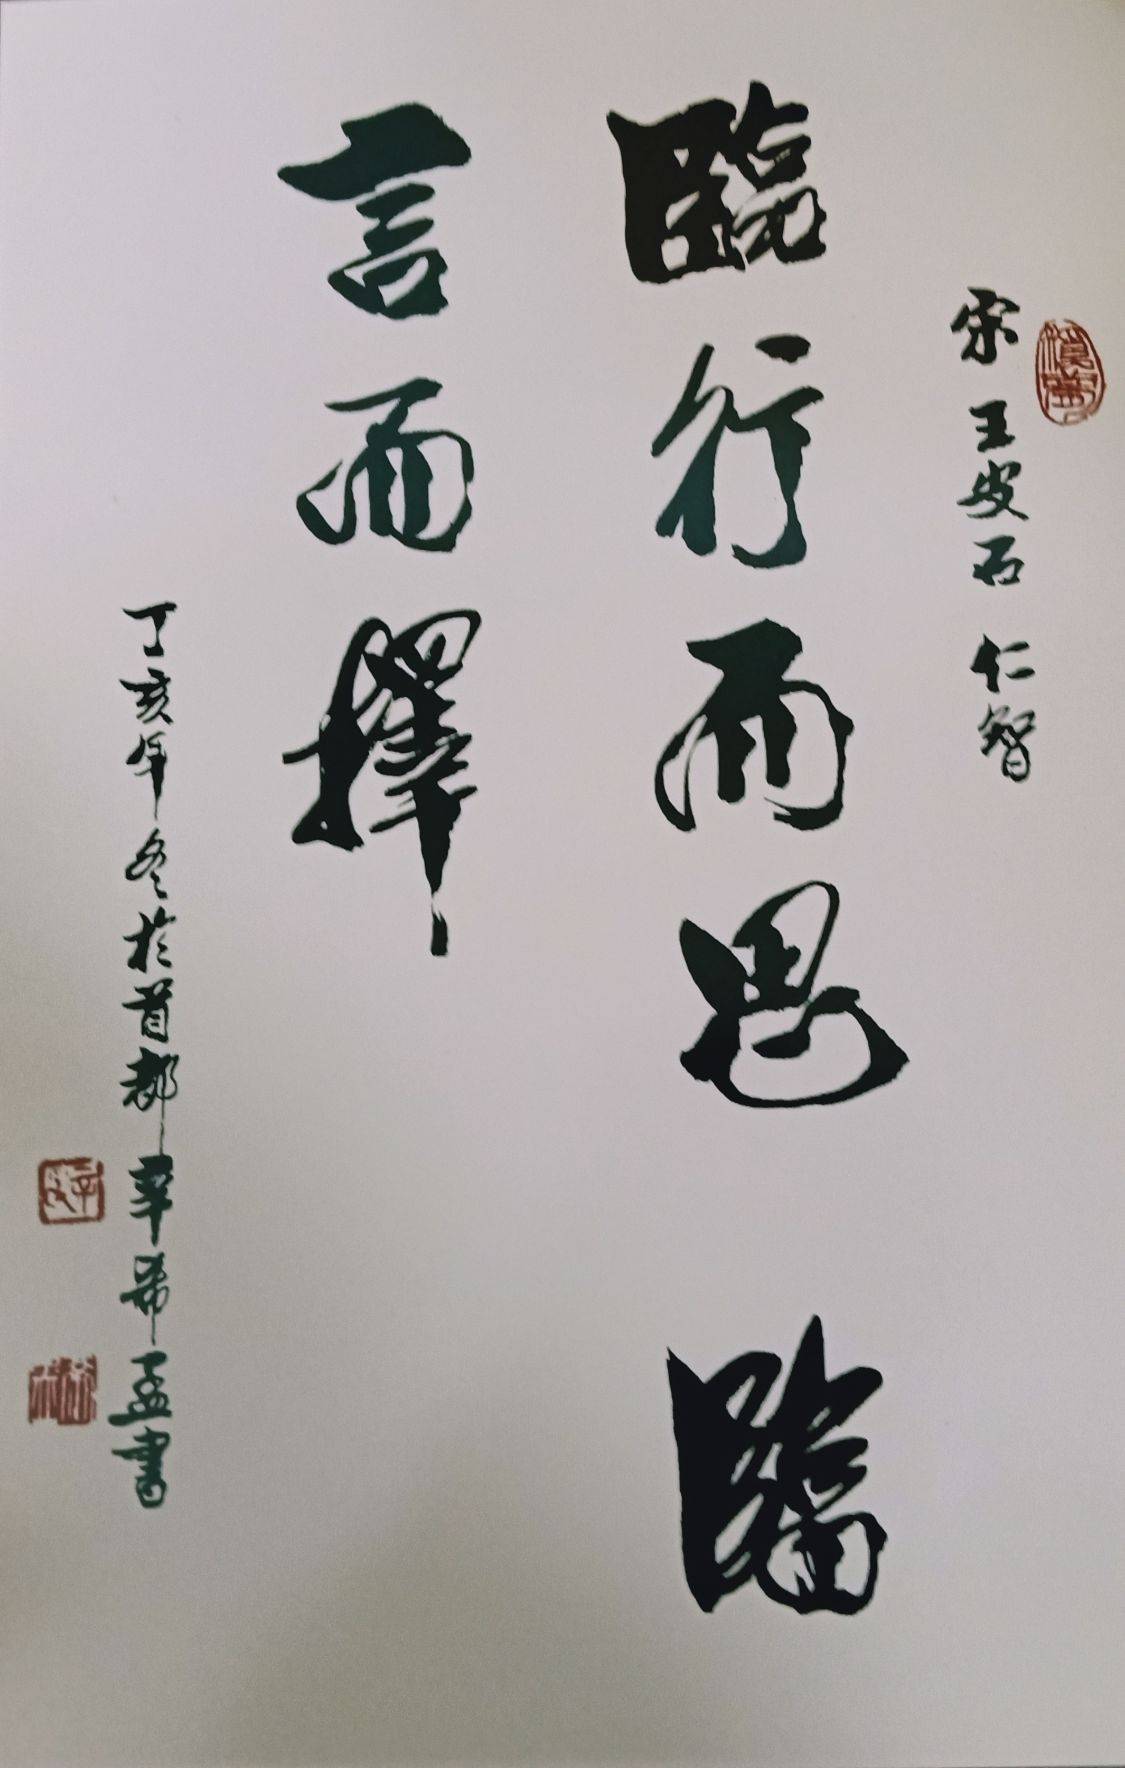 宋 王安石 仁智
臨行而思 臨
言而擇
丁亥年冬於首都辛希孟書